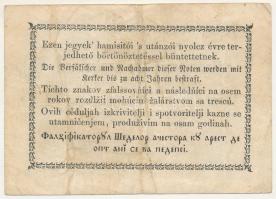 Ezen jegyek' hamisitói 's utánzói nyolcz évre ter-
jedhető börtönöztetéssel büntettetnek.
Die Verfälscher und Nachahmer dieser Noten werden mit
Kerker bis zu acht Jahren bestraft.
Tíchto znakov zfalssováťi a následňíci na osem
rokov rozťažiť mohúcim žalárstvom sa trescú.
Ovih ceduljah izkrivitelji i spotvoritelji kazne se
utamničenjem, produživim na osam godinah.
Фалxіфікаторул Шеделор ачестора кꙋ арест де
опт ані се ва педепсі.